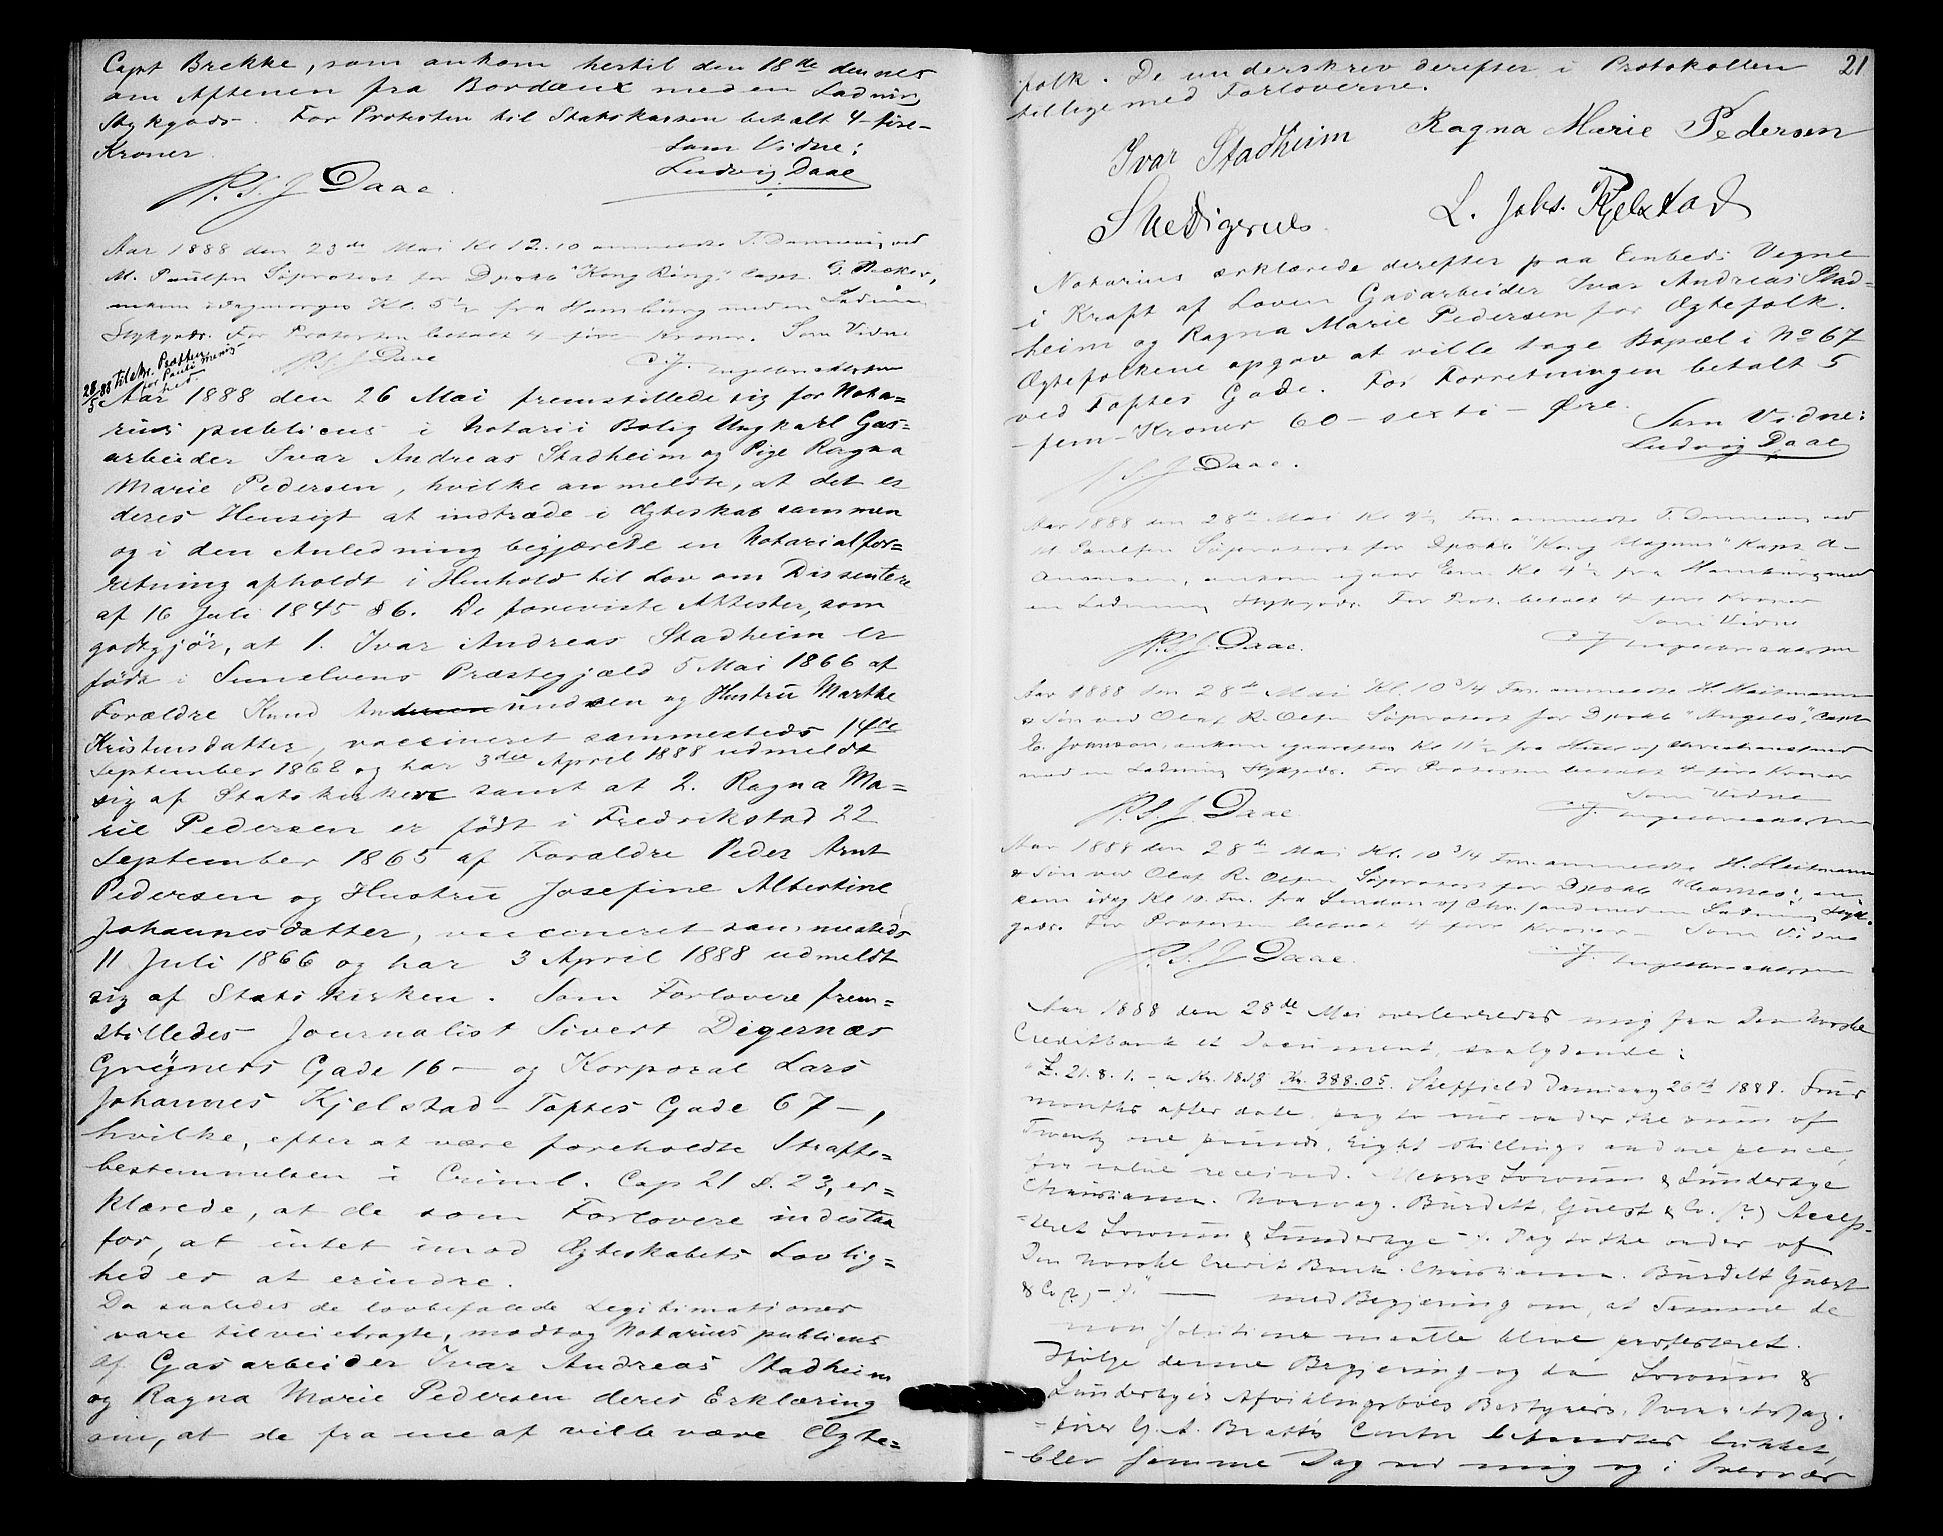 Capt Brekke, som ankom hertil den 18de dennes
om Aftenen fra Bordeaux med en Ladning
Stykgods. For Protesten til Statskassen betalt 4-fire-
Kroner.
Som Vidne:
Ludvig Daae
P.S.J Daae.
Aar 1888 den 23de Mai Kl 12.10 anmeldte T. Dannevig ved
M. Paulsen Söprotest for Dpskb "Kong Ring" Capt.
ankom idagmorges Kl. 5½ fra Hamburg med en Ladning
Stykgods. For Protesten betalt 4 fire Kroner. Som Vidne
P.S.J Daae
C.J. Ingebrechtsen
28/5 88 til
Aar 1888 den 26 Mai fremstillede sig for Nota=
rius publicus i Notarii Bolig Ungkarl Gas=
arbeider Ivar Andreas Stadheim og Pige Ragna
Marie Pedersen, hvilke anmeldte, at det er
deres Hensigt at indtræde i Ægteskab sammen
og i den Anledning begjærede en Notarialfor=
retning afholdt i Henhold til Lov om Dissentere
af 16 Juli 1845 § 6. De foreviste Attester, som
godtgjör, at 1. Ivar Andreas Stadheim er
födt i Sunelvens Præstegjæld 5 Mai 1866 af
Forældre Knud og Hustru Marthe
Kristensdatter, vaccineret sammesteds 14de
September 1868 og har 3die April 1888 udmeldt
sig af Statskirken samt at 2. Ragna Ma=
rie Pedersen er födt i Fredrikstad 22
September 1865 af Forældre Peder Arnt
Pedersen og Hustru Josefine Albertine
Johannesdatter, vaccineret sammesteds
11 Juli 1866 og har 3 April 1888 udmeldt
sig af Statskirken. Som Forlovere frem=
stilledes Journalist Sivert Digernæs
Grügners Gade 16 - og Korporal Lars
Johannes Kjelstad - Toftes Gade 67 -,
hvilke, efter at være foreholdte Straffe=
bestemmelsen i Criml. Cap 21 §. 23, er=
klærede, at de som Forlovere indestaa
for, at intet imod Ægteskabets Lovlig=
hed er at erindre.
Da saaledes de lovbefalede Legitimationer
vare tilveiebragte, modtog Notarius publicus
af Gasarbeider Ivar Andreas Stadheim
og Ragna Marie Pedersen deres Erklæring
om, at de fra nu af ville være Ægte=
21
folk. De underskrev derefter i Protokollen
tilligemed Forloverne.
Ivar Stadheim
Ragna Marie Pedersen
S Digernes.
L. Johs. Kjelstad
Notarius erklærede derefter paa Embeds Vegne
i Kraft af Loven Gasarbeider Ivar Andreas Stad=
heim og Ragna Marie Pedersen for Ægtefolk.
Ægtefolkene opgav at ville tage Bopæl i No 67
ved Toftes Gade. For Forretningen betalt 5
-fem- Kroner 60 - sexti - Øre.
Som Vidne:
Ludvig Daae
P.S.J Daae.
Aar 1888 den 28de Mai Kl 9½ Fm. anmeldte T. Dannevig ved
M. Paulsen Söprotest for Dpskb "Kong Magnus" Kapt
ankom igaar Em. Kl 4½ fra Hamburg med
en Ladning Stykgods. For Prot. betalt 4 fire Kroner
Som Vidne
P.S.J Daae.
C.J Ingebrechtsen
Aar 1888 den 28de Mai Kl. 10 3/4 Fm. anmeldte H. Heitmann
& Sön ved Olaf R. Olsen Söprotest for Dpskb "Angelo", Capt
ankom igaaraftes Kl 11½ fra Hull og Christianssand
med en Ladning Stykgods. For Protesten betalt 4 fire Kroner
Som Vidne
P.S.J Daae
C.J. Ingebrechtsen
Aar 1888 den 28de Mai Kl. 10 3/4 Fm. anmeldte H. Heitmann
& Sön ved Olaf R. Olsen Söprotest for Dpskb "Cameo", an=
kom idag Kl 10. Fm. fra London og Chr.sand med en Ladning Styk=
gods. For Protesten betalt 4 fire Kroner - Som Vidne
P.S.J Daae.
C.J. Ingebrechtsen
Aar 1888 den 28de Mai overleveredes mig fra Den Norske
Creditbank et Document, saalydende:
"£. 21.8.1. - a Kr. 18.13 Kr. 388.05. Sheffield January 26th 1888. Four
months after date, pay to our order the sum of
Twenty one pounds, Eight shillings and one pence,
for value received. Messrs &
Christiania. Norway. Burdett, Guest & Co. (?) Accep-
&. Pay to the order of
Den Norske Credit Bank. Christiania. Burdett Guest
& Co (?) - " — med Begjering om, at samme de
non solutione maatte blive protesteret.
Ifölge denne Begjering og da &
Afviklingsboes Bestyrers,
Contor befandtes lukket,
blev samme Dag ved mig og i Overvær